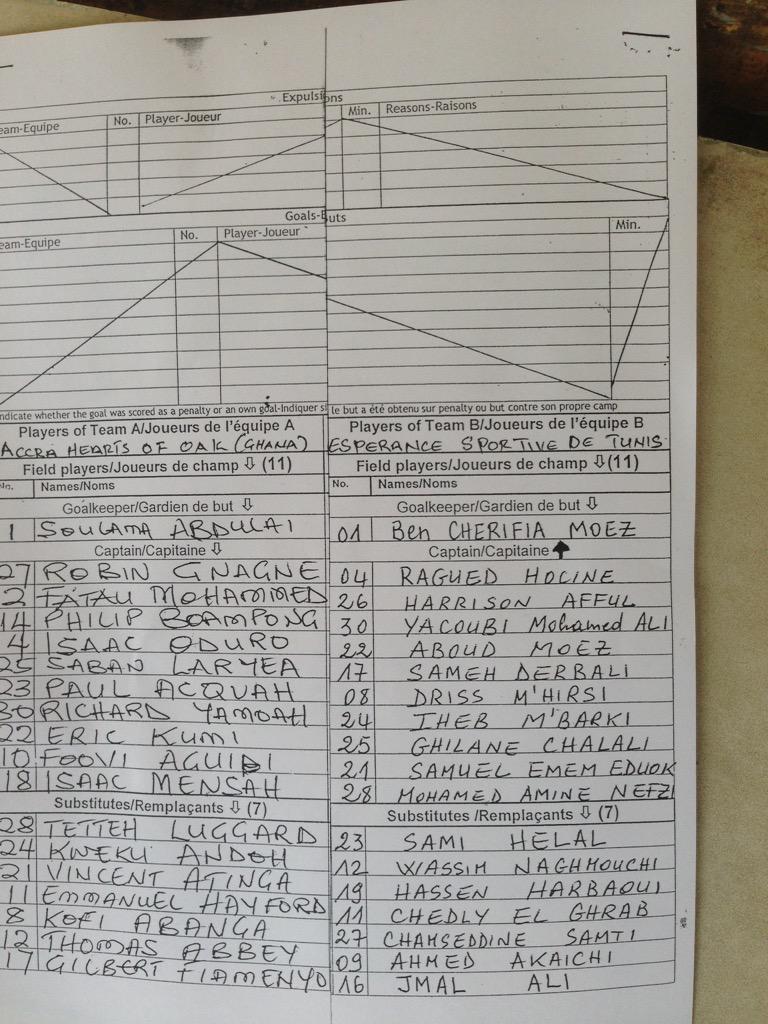 Expulsions
eam-Equipe No. Player-Joueur Min. Reasons-Raisons
Goals-Buts
eam-Equipe No. Player-Joueur Min.
ndicate whether the goal was scored as a penalty or an own goal-Indiquer si le but a été obtenu sur penalty ou but contre son propre camp
Players of Team A/Joueurs de l'équipe A
ACCRA HEARTS OF OAK (GHANA)
Field players/Joueurs de champ ⇩ (11)
No. Names/Noms
Goalkeeper/Gardien de but ⇩
1 SOULAMA ABDULAI
Captain/Capitaine ⇩
27 ROBIN GNAGNE
2 FATAU MOHAMMED
14 PHILIP BOAMPONG
4 ISAAC ODURO
25 SABAN LARYEA
23 PAUL ACQUAH
30 RICHARD YAMOAH
22 ERIC KUMI
10 FOOVI AGUIDI
18 ISAAC MENSAH
Substitutes/Remplaçants ⇩ (7)
28 TETTEH LUGGARD
24 KWEKU ANDOH
21 VINCENT ATINGA
11 EMMANUEL HAYFORD
8 KOFI ABANGA
12 THOMAS ABBEY
17 GILBERT FIAMENYO
Players of Team B/Joueurs de l'équipe B
ESPERANCE SPORTIVE DE TUNIS
Field players/Joueurs de champ ⇩(11)
No. Names/Noms
Goalkeeper/Gardien de but ⇩
01 Ben CHERIFIA MOEZ
Captain/Capitaine
04 RAGUED HOCINE
26 HARRISON AFFUL
30 YACOUBI Mohamed ALI
22 ABOUD MOEZ
17 SAMEH DERBALI
08 DRISS M'HIRSI
24 IHEB M'BARKI
25 GHILANE CHALALI
21 SAMUEL EMEM EDUOK
28 MOHAMED AMINE NEFZI
Substitutes /Remplaçants ⇩ (7)
23 SAMI HELAL
12 WASSIM NAGHMOUCHI
19 HASSEN HARBAOUI
11 CHEDLY EL GHRAB
27 CHAMSEDDINE SAMTI
09 AHMED AKAICHI
16 JMAL ALI